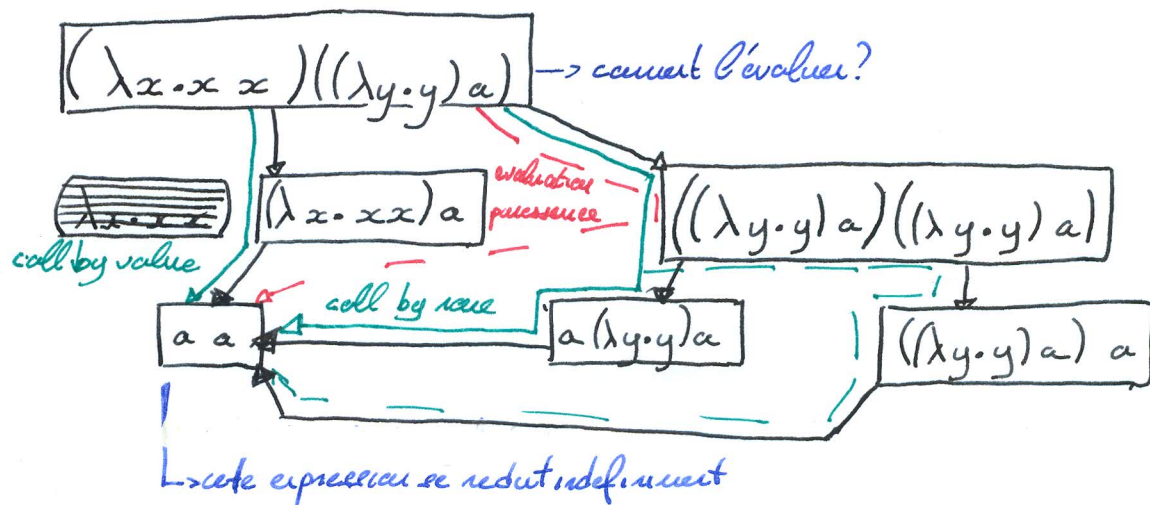 (λx.x x)((λy.y) a) → comment l'évaluer?
evaluation
paresseuse
(λx.xx) a
((λy.y) a)((λy.y) a)
call by value
call by name
a a
a (λy.y) a
((λy.y) a) a
↳ cette expression se reduit indefiniment